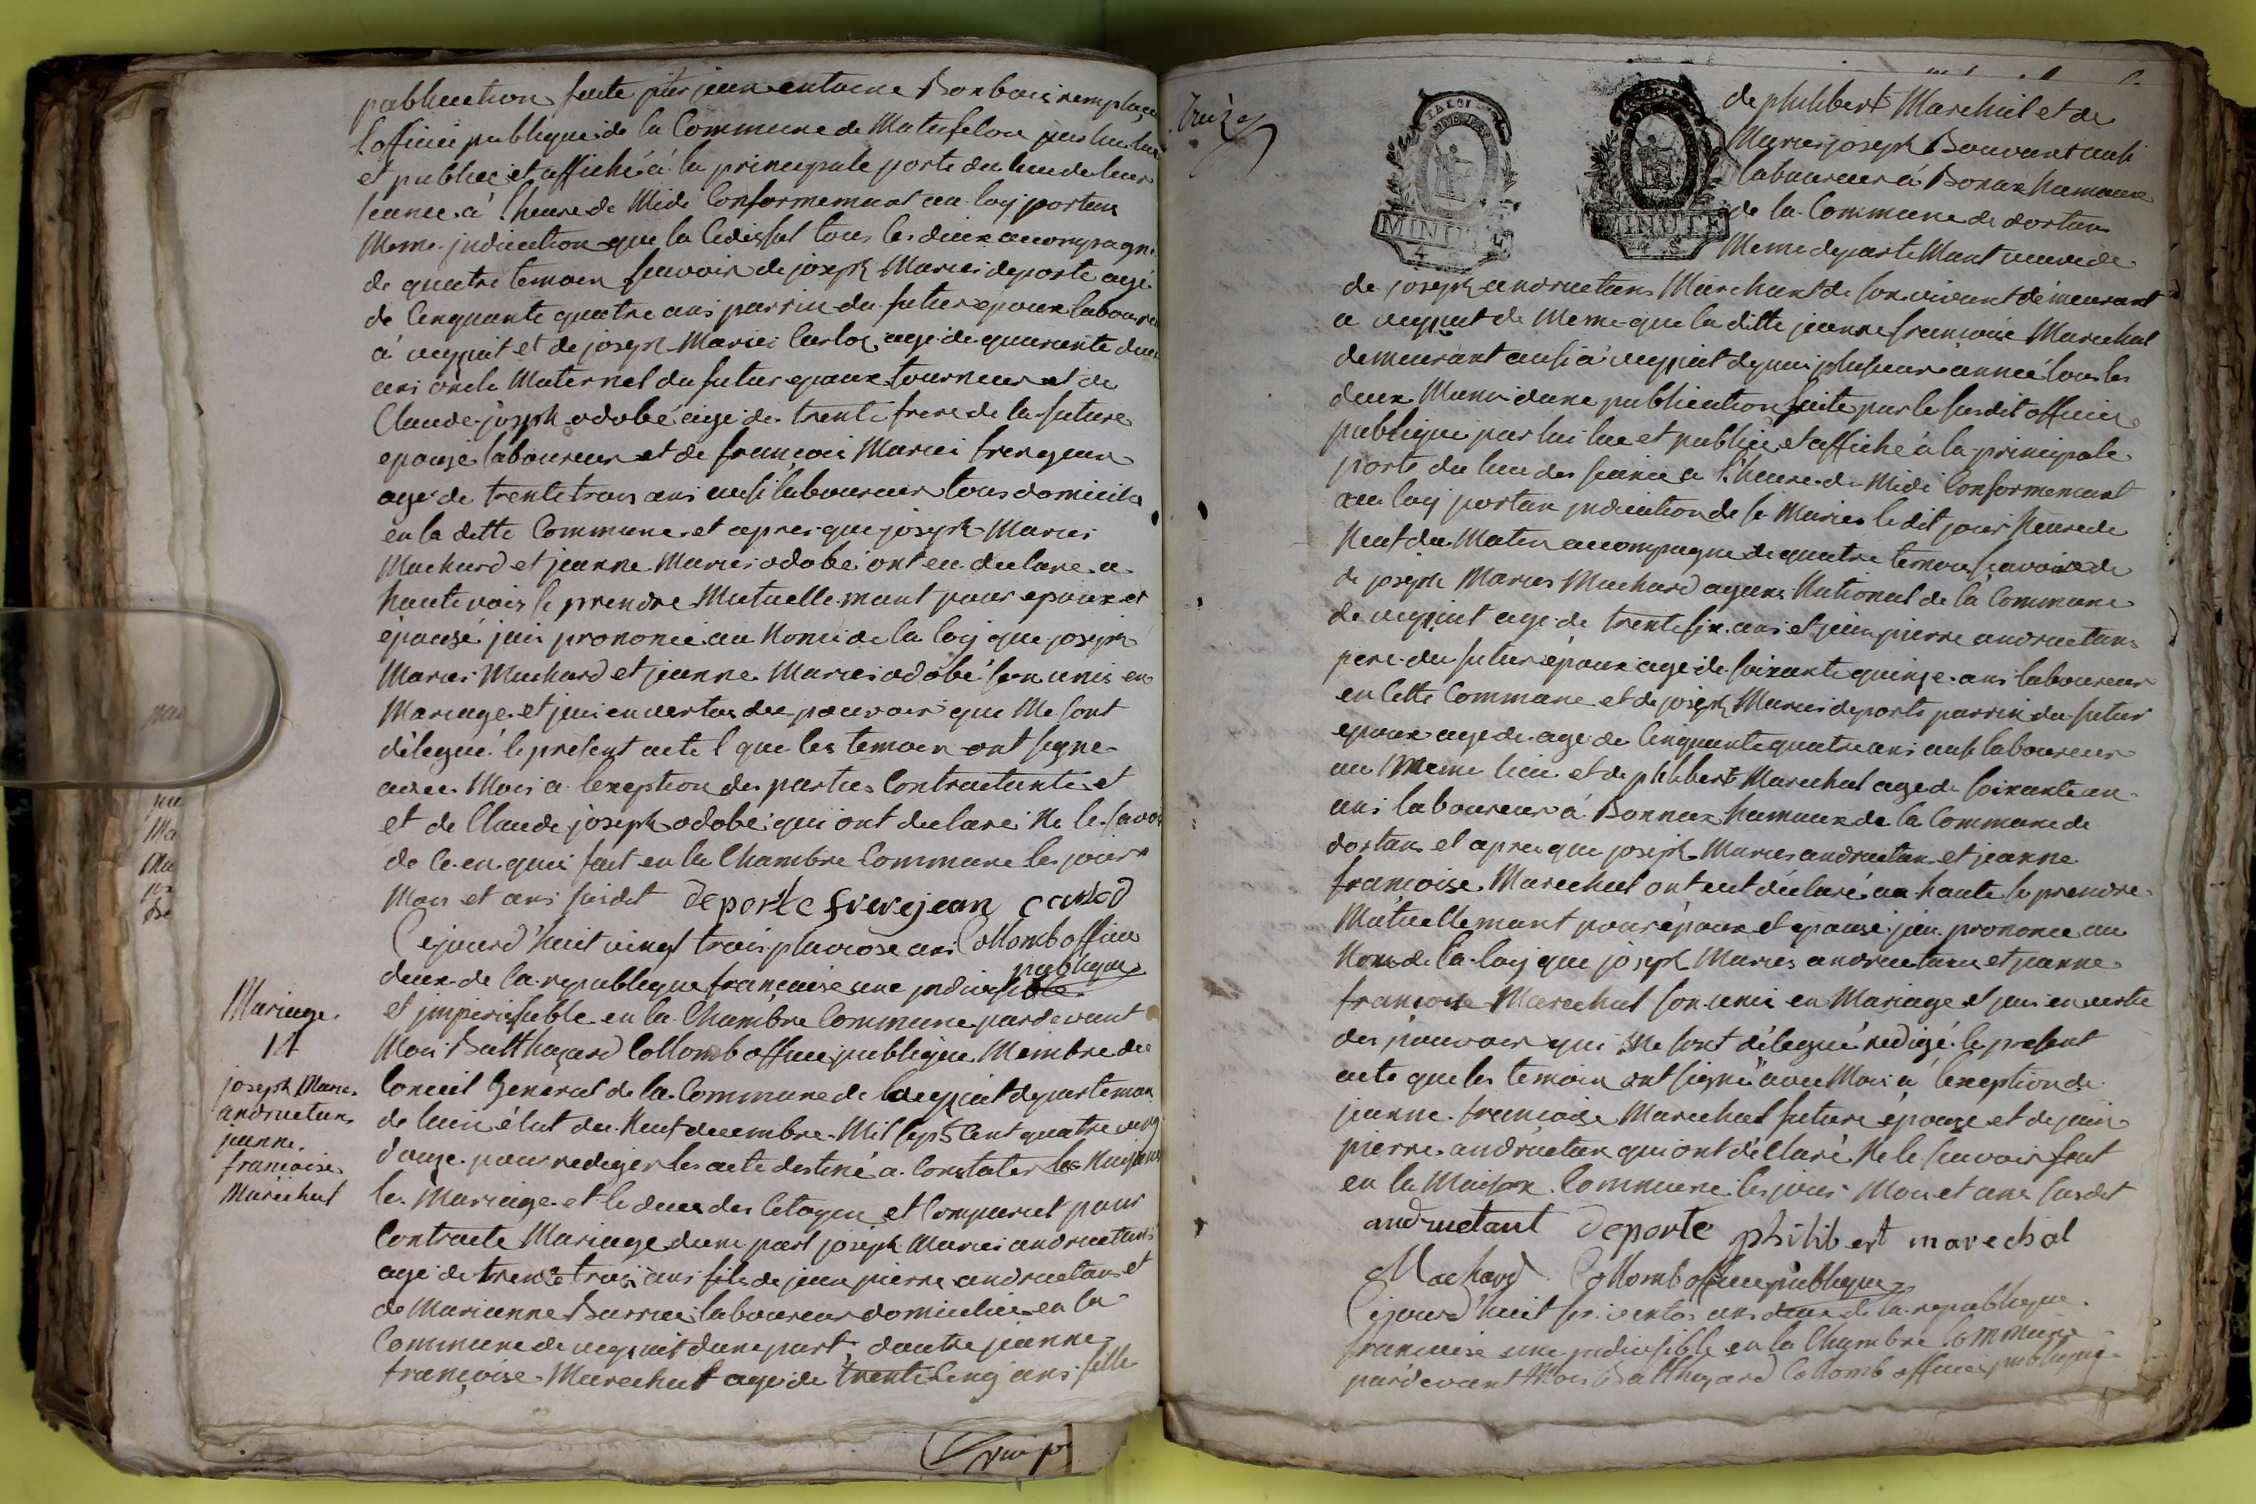 publication faite par jean antoine Bonbois remplaçan
l'officier publique de la Commune de Matafelon par lui lue
et publiée et affiché à la principale porte du lieu de leur
seance à l'heure de Midi Conformemant au loy portant
Meme indication que la Cedissus tous les deux accompagné
de quatre temoin scavoir de joseph Maries deporte agé
de Cinquante quatre ans parrin du futur epoux laboureur
à veyziat et de joseph Maries Carloz agé de quarante deux
ans oncle Maternel du futur epoux tourneur et de
Claude joseph odobé agé de trente frere de la future
epouze laboureur et de françois Maries frerejean
agé de trente trois ans ausi laboureur tous domicilie
en la ditte Commune et apres que joseph Maries
Machard et jeanne Maries odobé ont eu declare a
haute vois se prendre Mutuellemant pour epoux et
épousé jai prononcé au Nom de la loy que joseph
Maries Machard et jeanne Maries odobé son unis en
Mariage et jai en vertus des pouvoir qui Me sont
délegué le présent acte l que les temoin ont signe
avec Mois a l'exeption des parties Contractante et
et de Claude joseph odobé qui ont declaré Ne le savoi
de ce en quis fait en la Chambre Commune les jours
Mois et ans susdit deporte frerejean carloz
Cejourd'huit vingt trois pluviose ans Collomb officier
publique
deux de la republique française une indivisible
et imperissable en la Chambre Commune pardevant
Moi Balthazard Collomb officier publique Membre du
Conseil General de la Commune de veyziat departeman
de lain élut du Neuf decembre Mil sept Cent quatre ving
douze pour rediger les acte destiné a Constater les Naissans
le Mariage et le deces des Citoyen et Comparut pour
Contracte Mariage dune part joseph Maries andructan
agé de trente trois ans fils de jean pierre andructan et
de Marianne Barrier laboureur domicilié en la
Commune de veyziat dune part, dautre jeanne
françoise Marechal agé de trente Cinq ans fille
Mariage
14
joseph Marie
andructan
jeanne
francoise
Maréchal
Treize
MINUTE
4
MINUTE
de philibert Marechal et de
Maries joseph Bouvant ausi
laboureur à Bonaz hameaux
de la Commune de dortan
Meme departeMant veuve de
de joseph andructan Marchant de son vivant démeurant
a veyziat de Meme que la ditte jeanne francoise Marechal
demeurant ausi à veyziat depuis plusieur année tous les
deux Munis dune publication faite par le susdit officier
publique par lui lue et publiée et affiché à la principale
porte du lieu des seance a l'heure de Midi Conformemant
au loy portan indication de se Maries le dit jour heure de
Neuf du Matin accompagne de quatre temoin scavoir de
de joseph Maries Machard agent National de la Commune
de veyziat agé de trente six ans et jean pierre andructan
pere du futur époux agé de soixante quinze ans laboureur
en Cette Commune et de joseph Maries deporte parrin du futur
epoux age de agé de Cinquante quatre ans ausi laboureur
au Meme lieu et de philibert Marechal agé de soixante un
ans laboureur à Bonnaz hameaux de la Commune de
dortan et apres que joseph Maries andructan et jeanne
françoise Marechal ont eut déclaré au haute se prendre
Mutuellemant pour époux et epouze jai prononce au
Nom de la loy que joseph Maries andructan et jeanne
francoise Marechal son unis en Mariage et jai en vertu
des pouvoir qui Me sont délegué redigé le present
acte que les temoin ont signé avec Moi à l'exeption de
jeanne francoise Marechal future épouze et de jean
pierre andructan qui ont déClaré Ne le scavoir fait
en la Maison Commune les jour Mois et ans susdit
andructant deporte philibert marechal
Machard Collomb officier publique
Cejourd'huit six ventos ans deux de la republique
francaise une indivisible en la Chambre Commune
pardevant Mois Balthazard Collomb officier publique